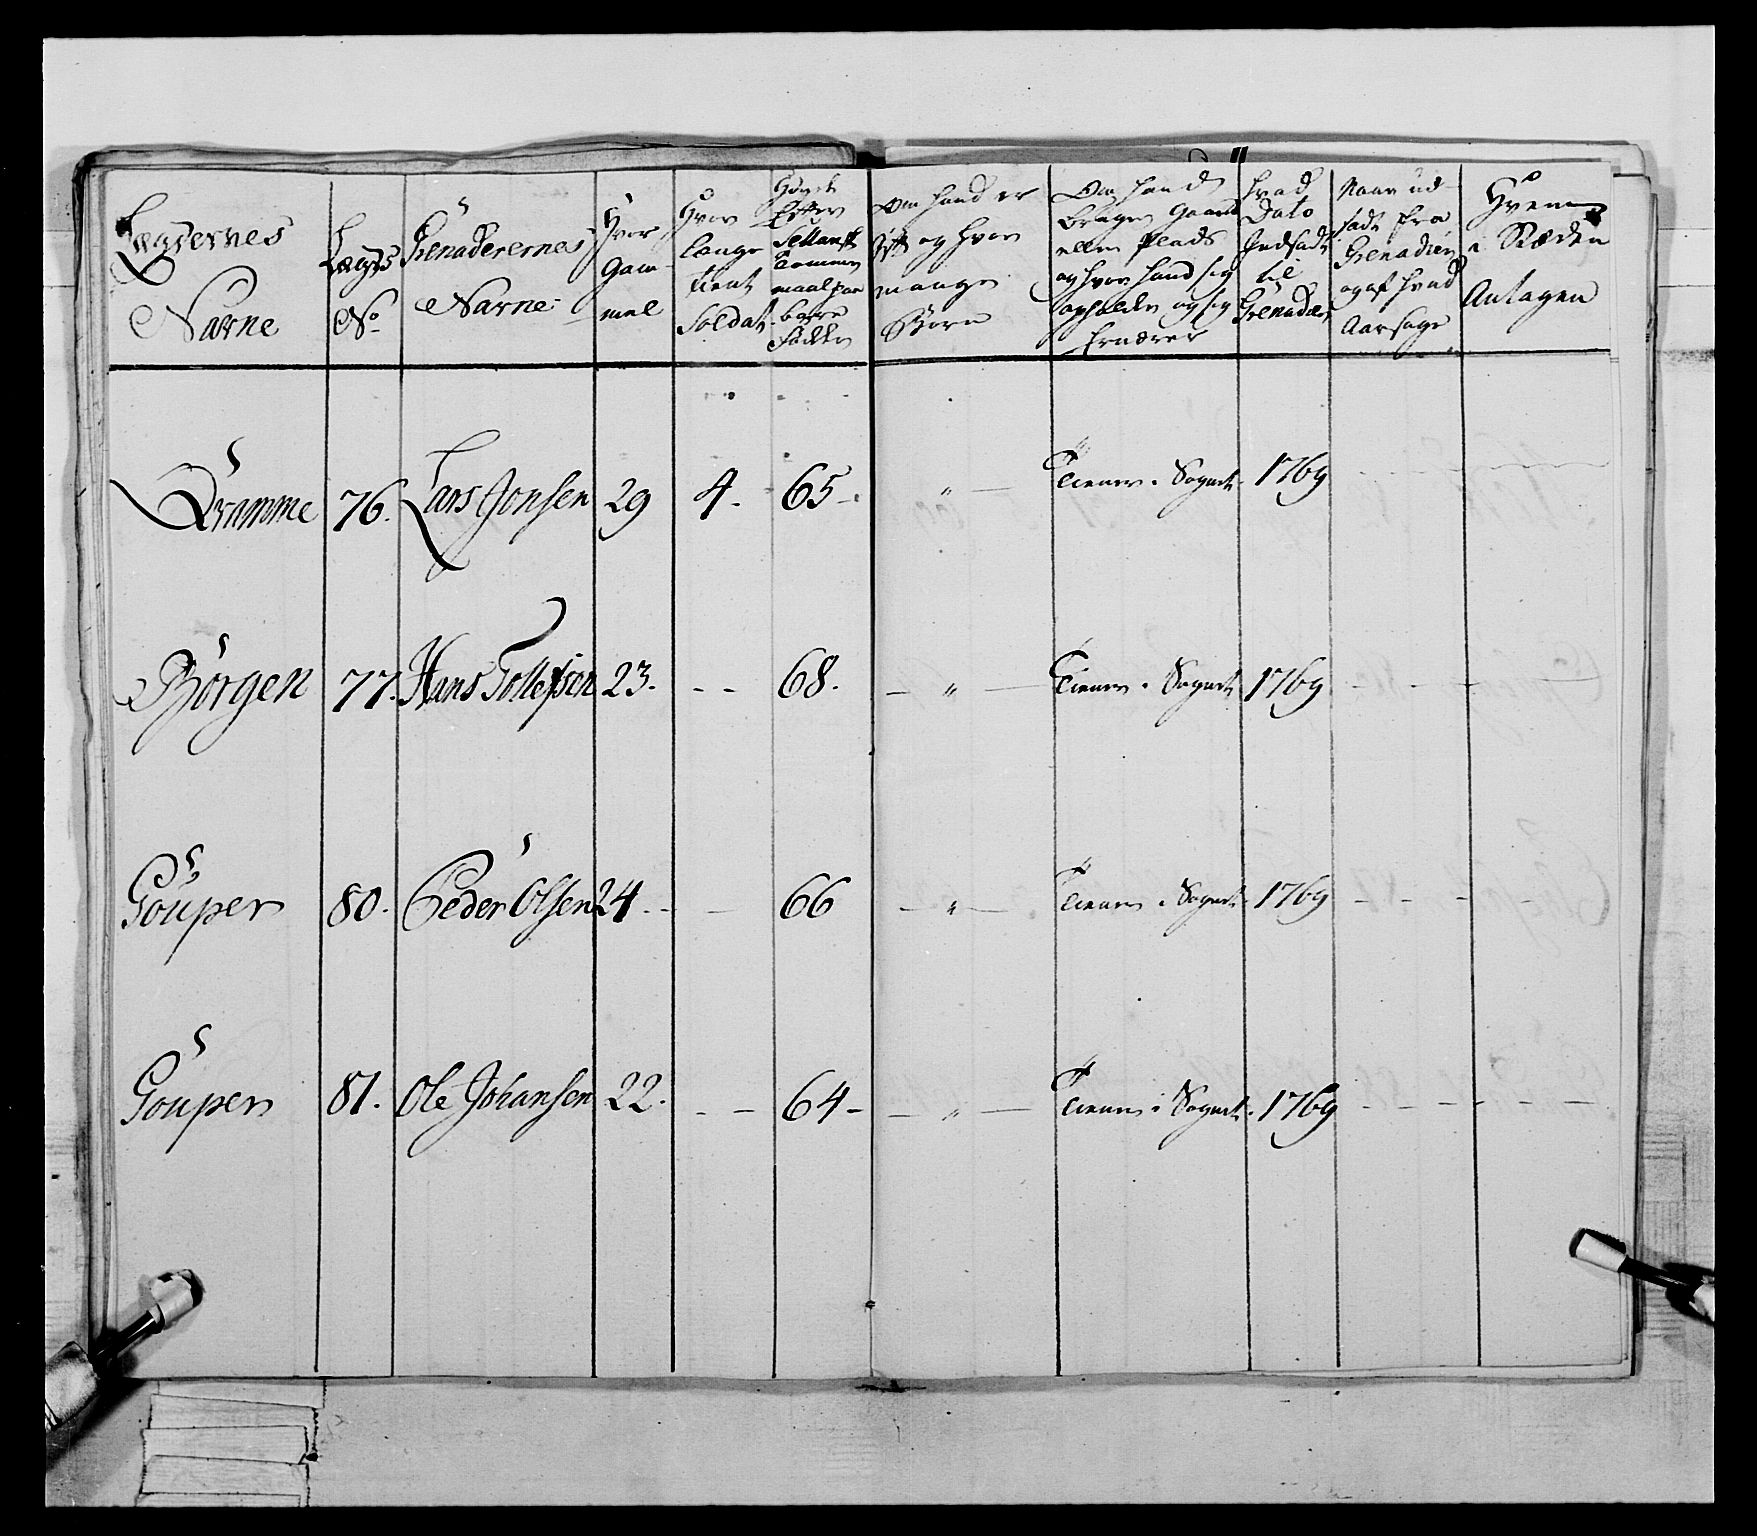 Lægdernes
Navne
Lægds
No
Grenaderernes
Navne
Hvor
Gam-
mel
Hvor
længe
tient
Soldat
Høyde
Efter
Sellandsk
Tommer
maal paa
bare
Fødder
Om hand er
gift og hvor
mange
Børn
Om hand
bruger Gaard
eller Plads
og hvor hand sig
opholder og sig
Ernærer
hvad
Dato
Indsadt
til
Grenader
Naar ud-
sadt fra
Grenader
og af hvad
Aarsage
Hvem
i Stæden
Antagen
Qvamme 76. Lars Jonsen 29 4. 65 - " - Tiener i Sognet. 1769
Børgen 77. Hans Tollefsen 23. - - 68. - " - Tiener i Sognet 1769 - - - -
Goupen 80. Peder Olsen 24. - - 66 - " - Tiener i Sognet. 1769 - - - -
Goupen 81. Ole Johansen 22. - - 64 - - " - Tiener i Sognet. 1769 - - - - -